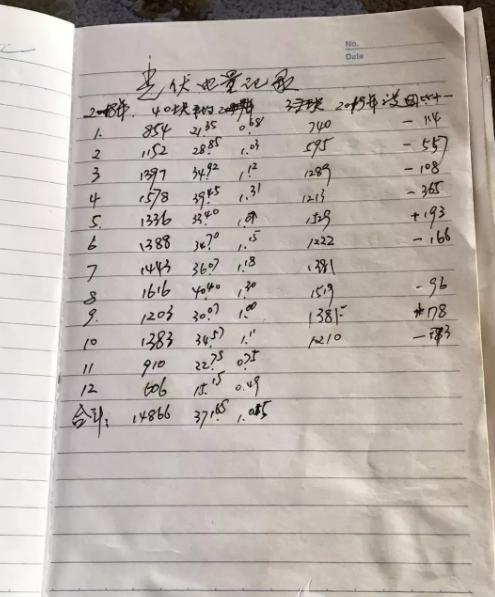 No.
Date
光伏电量记录
2018年. 40块 2019年
1. 854 21.35 0.68 740 -114
2 1152 28.85 1.03 595 -557
3 1397 34.92 1.12 1289 -108
4 1578 39.45 1.31 1213 -365
5. 1336 33.40 1.08 1529 +193
6 1388 34.70 1.15 1222 -166
7 1443 36.07 1.18 1381
8 1616 40.40 1.30 1519 -96
9. 1203 30.07 1.00 1381 +78
10 1383 34.57 1.11 1210
11 910 22.75 0.75
12 606 15.15 0.49
合计: 14866 371.65